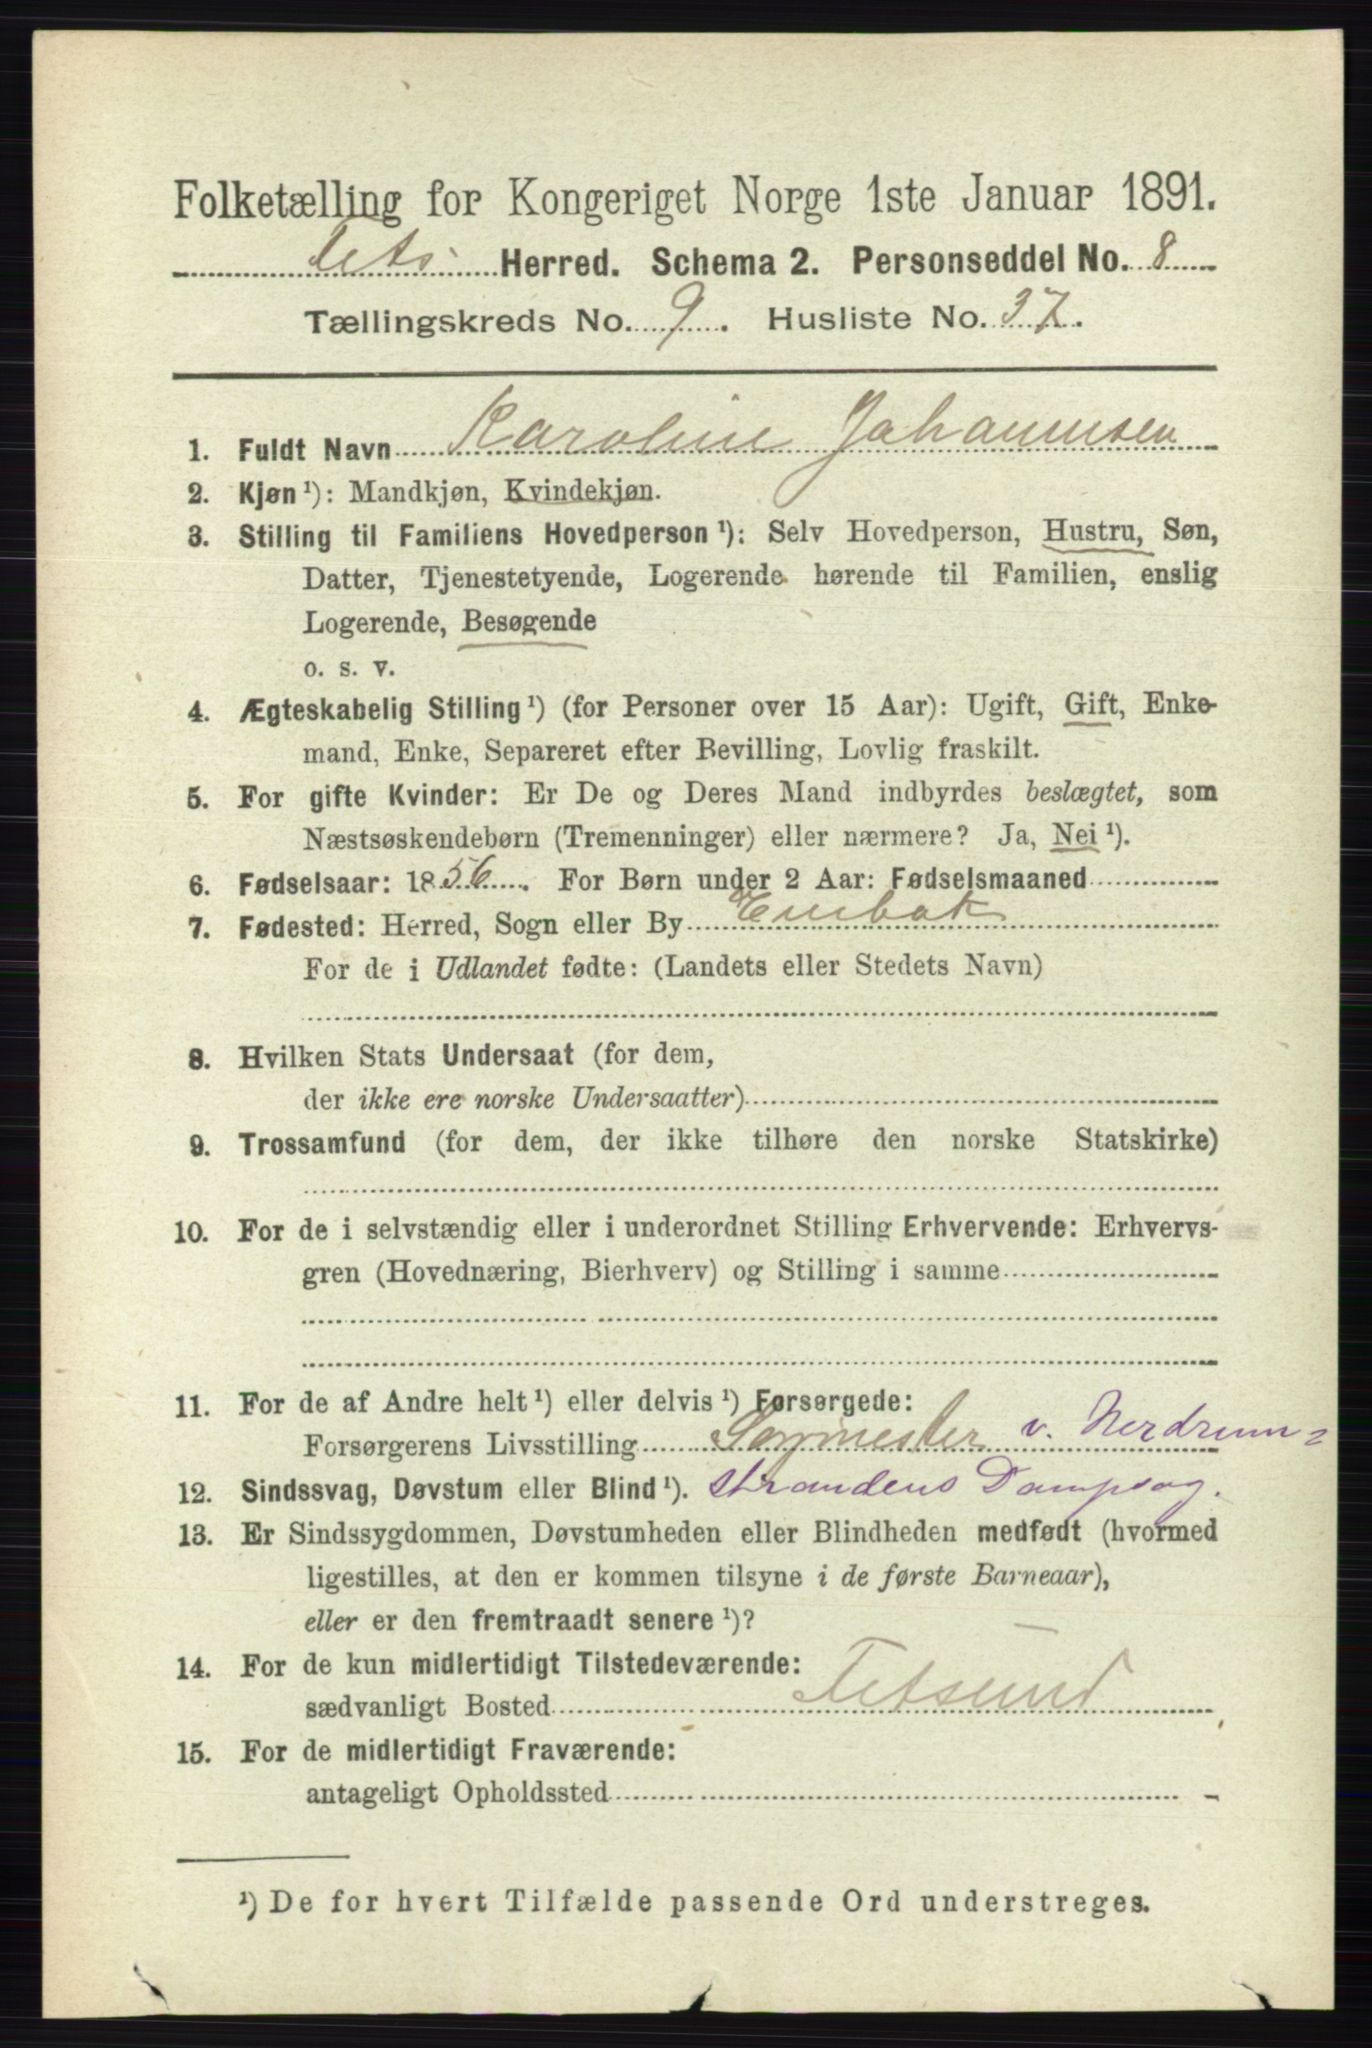 Folketælling for Kongeriget Norge 1ste Januar 1891.
Fets Herred. Schema 2. Personseddel No. 8
Tællingskreds No. 9. Husliste No. 37.
1. Fuldt Navn Karoline Johannesen
2. Kjøn ¹): Mandkjøn, Kvindekjøn.
3. Stilling til Familiens Hovedperson ¹): Selv Hovedperson, Hustru, Søn,
Datter, Tjenestetyende, Logerende hørende til Familien, enslig
Logerende, Besøgende
o. s. v.
4. Ægteskabelig Stilling ¹) (for Personer over 15 Aar): Ugift, Gift, Enke-
mand, Enke, Separeret efter Bevilling, Lovlig fraskilt.
5. For gifte Kvinder: Er De og Deres Mand indbyrdes beslægtet, som
Næstsøskendebørn (Tremenninger) eller nærmere? Ja, Nei ¹).
6. Fødselsaar: 1856. For Børn under 2 Aar: Fødselsmaaned
7. Fødested: Herred, Sogn eller By Enebak
For de i Udlandet fødte: (Landets eller Stedets Navn)
8. Hvilken Stats Undersaat (for dem,
der ikke ere norske Undersaatter)
9. Trossamfund (for dem, der ikke tilhøre den norske Statskirke)
10. For de i selvstændig eller i underordnet Stilling Erhvervende: Erhvervs-
gren (Hovednæring, Bierhverv) og Stilling i samme
11. For de af Andre helt ¹) eller delvis ¹) Forsørgede:
Forsørgerens Livsstilling Sagmester v. Nerdrum-
12. Sindssvag, Døvstum eller Blind ¹). strandens Dampsag.
13. Er Sindssygdommen, Døvstumheden eller Blindheden medfødt (hvormed
ligestilles, at den er kommen tilsyne i de første Barneaar),
eller er den fremtraadt senere ¹)?
14. For de kun midlertidigt Tilstedeværende:
sædvanligt Bosted Fetsund
15. For de midlertidigt Fraværende:
antageligt Opholdssted
¹) De for hvert Tilfælde passende Ord understreges.